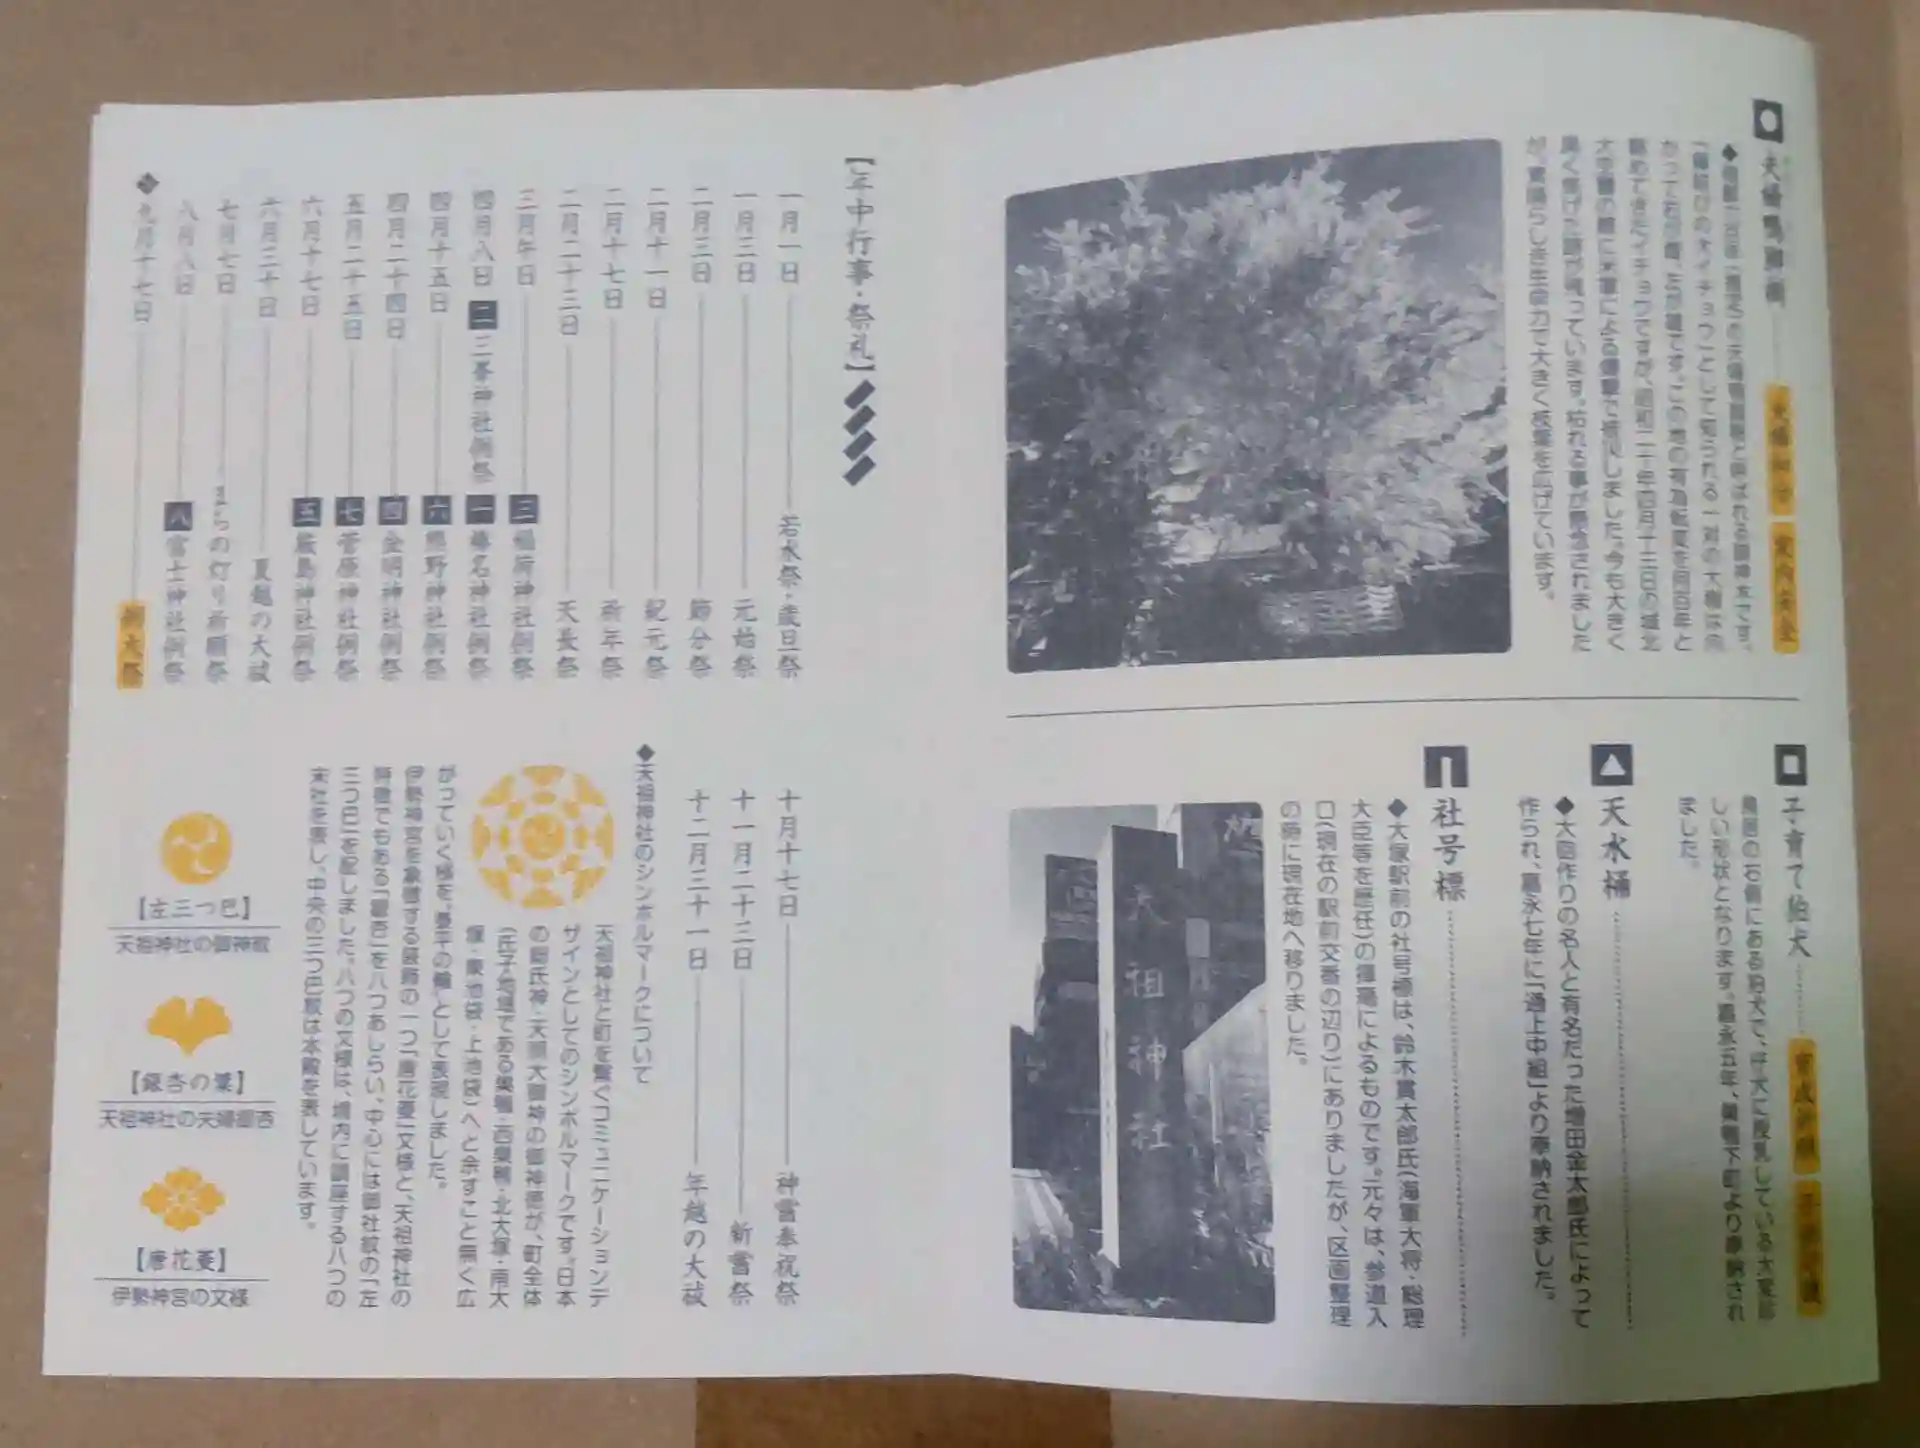 夫婦銀杏
夫婦和合
家内安全
「縁結びの大イチョウ」として知られる一対の大樹は向
かって右が雌、左が雄です。この地の有為転変を四百年と
眺めてきたイチョウですが、昭和二十年四月十三日の城北
大空襲の際に米軍による爆撃で焼失しました。今も大きく
黒く焦げた跡が残っています。枯れる事が懸念されました
が、素晴らしき生命力で大きく枝葉を広げています。
子育て狛犬
育成祈願
鳥居の右側にある狛犬で、仔犬に授乳している大変珍
しい形状となります。嘉永五年、巣鴨下町より奉納され
ました。
天水桶
◆大凧作りの名人と有名だった増田金太郎氏によって
作られ、嘉永七年に「通上中組」より奉納されました。
社号標
◆大塚駅前の社号標は、鈴木貫太郎氏(海軍大将・総理
大臣等を歴任)の揮毫によるものです。元々は、参道入
口(現在の駅前交番の辺り)にありましたが、区画整理
の際に現在地へ移りました。
天祖神社
【年中行事・祭礼】
一月一日 若水祭・歳旦祭
一月三日 元始祭
二月三日 節分祭
二月十一日 紀元祭
二月十七日 祈年祭
二月二十三日 天長祭
三月午日 三 稲荷神社例祭
四月八日 二 三峯神社例祭 一 榛名神社例祭
四月十五日 六 熊野神社例祭
四月二十四日 四 金明神社例祭
五月二十五日 七 菅原神社例祭
六月十七日 五 厳島神社例祭
六月三十日 夏越の大祓
七月七日 まちの灯り祈願祭
八月八日 八 富士神社例祭
九月十七日 例大祭
十月十七日 神嘗奉祝祭
十一月二十三日 新嘗祭
十二月三十一日 年越の大祓
◆天祖神社のシンボルマークについて
天祖神社と町を繋ぐコミュニケーションデ
ザインとしてのシンボルマークです。日本
の総氏神・天照大御神の御神徳が、町全体
(氏子地域である巣鴨・西巣鴨・北大塚・南大
塚・東池袋・上池袋)へと余すこと無く広
がっていく様を、「平の輪」として表現しました。
伊勢神宮を象徴する装飾の一つ「唐花菱」文様と、天祖神社の
特徴でもある「銀杏」を八つあしらい、中心には御社紋の「左
三つ巴」を配しました。八つの文様は、境内に鎮座する八つの
末社を表し、中央の三つ巴紋は本殿を表しています。
【左三つ巴】
天祖神社の御神紋
【銀杏の葉】
天祖神社の夫婦銀杏
【唐花菱】
伊勢神宮の文様